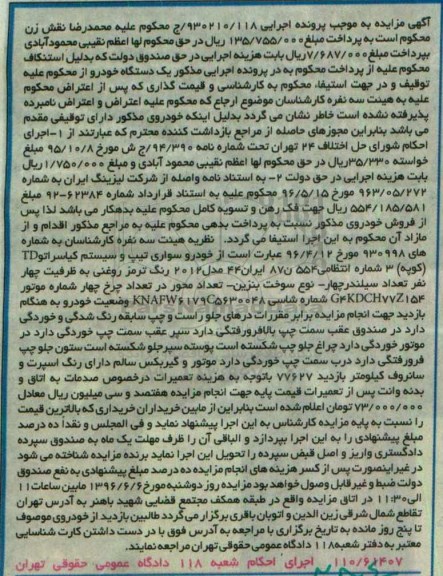 آگهی مزایده به موجب پرونده اجرایی ۹۳۰۲۱۰/۱۱۸/ج محکوم علیه محمدرضا نقش زن
محکوم است به پرداخت مبلغ ۱۳۵/۷۵۵/۰۰۰ ریال در حق محکوم لها اعظم نقیبی محمودآبادی
بپرداخت مبلغ ۷/۶۸۷/۰۰۰ ریال بابت هزینه اجرایی در حق صندوق دولت که بدلیل استنکاف
محکوم علیه از پرداخت محکوم به در پرونده اجرایی مذکور یک دستگاه خودرو از محکوم علیه
توقیف و در جهت استیفاء محکوم به کارشناسی و قیمت گذاری که پس از اعتراض محکوم
علیه به هیئت سه نفره کارشناسان موضوع ارجاع که محکوم علیه اعتراض و اعتراض نامبرده
پذیرفته نشده است خاطر نشان می گردد بدلیل اینکه خودروی مذکور دارای توقیفی مقدم
می باشد بنابراین مجوزهای حاصله از مراجع بازداشت کننده محترم که عبارتند از ۱-اجرای
احکام شورای حل اختلاف ۲۴ تهران تحت شماره نامه ۹۴/۳۹۰/ج ش مورخ ۹۵/۱۰/۸ مبلغ
خواسته ۳۵/۳۳۰ ریال در حق محکوم لها اعظم نقیبی محمود آبادی و مبلغ ۱/۷۵۰/۰۰۰ ریال
بابت هزینه اجرایی در حق دولت ۲- به استناد نامه واصله از شرکت لیزینگ ایران به شماره
۹۶۳/۰۵/۲۷۲ مورخ ۹۶/۵/۱۵ محکوم علیه به استناد قرارداد شماره ۶۲۳۸۴-۹۲ مبلغ
۵۵۴/۱۸۵/۵۸۱ ریال جهت فک رهن و تسویه کامل محکوم علیه بدهکار می باشد لذا پس
از فروش خودروی مذکور نسبت به پرداخت بدهی محکوم علیه به مراجع مذکور اقدام و از
مازاد آن محکوم به این اجرا استیفا می گردد. نظریه هیئت سه نفره کارشناسان به شماره
های ۹۳۰۹۹۸ مورخ ۹۶/۴/۱۲ عبارت است از خودرو سواری تیپ و سیستم کیاسراتو TD
(کوپه) ۳ شماره انتظامی ۵۵۴ ن ۸۷ ایران ۴۴ مدل ۲۰۱۲ رنگ ترمز روغنی به ظرفیت چهار
نفر تعداد سیلندر چهار- نوع سوخت بنزین- تعداد محور در تعداد چرخ چهار شماره موتور
G4KDCH77Z154 شماره شاسی KNAFW6179C5630048 وضعیت خودرو به هنگام
بازدید جهت انجام مزایده برابر مقررات درهای جلو راست و چپ سابقه رنگ شدگی و خوردگی
دارد در صندوق عقب سمت چپ بالافرورفتگی دارد سپر عقب سمت چپ خوردگی دارد در
موتور خوردگی دارد چراغ جلو چپ شکسته است پوسته سپر جلو شکسته است ستون جلو چپ
فرورفتگی دارد درب سمت چپ خوردگی دارد موتور و گیربکس سالم دارای رنگ اسپرت و
سانروف کیلومتر بازدید ۷۷۶۲۷ باتوجه به هزینه تعمیرات درخصوص صدمات به اتاق و
بدنه وانت پس از تعمیرات قیمت پایه جهت انجام مزایده هفتصد و سی میلیون ریال معادل
۷۳/۰۰۰/۰۰۰ تومان اعلام شده است بنابراین از مابین خریداران خریداری که بالاترین قیمت
را نسبت به پایه مزایده کارشناس به این اجرا پیشنهاد نماید و فی المجلس و نقدا ده درصد
مبلغ پیشنهادی را به این اجرا بپردازد و الباقی آن را ظرف مهلت یک ماه به صندوق سپرده
دادگستری واریز و اصل قبض سپرده را تحویل این اجرا نماید برنده مزایده شناخته می شود
در غیر اینصورت پس از کسر هزینه های انجام مزایده ده درصد مبلغ پیشنهادی به نفع صندوق
دولت ضبط و غیر قابل وصول خواهد بود مزایده روز دوشنبه مورخ ۱۳۹۶/۶/۶ مابین ساعات ۱۱
الی ۱۱:۳۰ در اتاق مزایده واقع در طبقه همکف مجتمع قضایی شهید باهنر به آدرس تهران
تقاطع شمال شرقی زین الدین و اتوبان باقری برگزار می گردد طالبین بازدید از خودروی موصوف
تا پنج روز مانده به تاریخ برگزاری با مراجعه به آدرس فوق با در دست داشتن کارت شناسایی
معتبر به دفتر شعبه ۱۱۸ دادگاه عمومی حقوقی تهران مراجعه نمایند.
۱۱۰/۶۲۴۰۷ اجرای احکام شعبه ۱۱۸ دادگاه عمومی حقوقی تهران